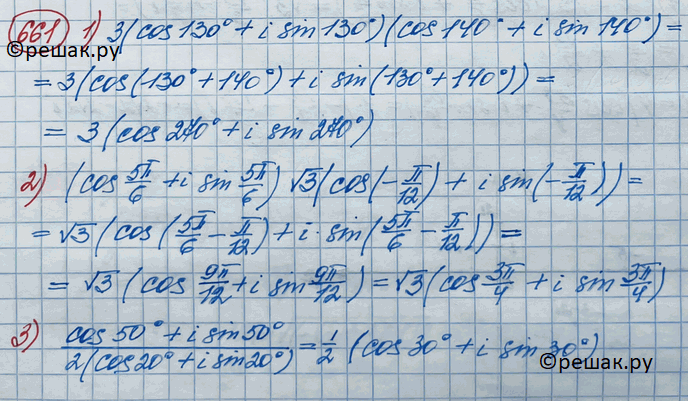 661 1) 3(cos 130° + i sin 130°)(cos 140° + i sin 140°) =
©решак.ру
= 3(cos(130° + 140°) + i sin(130° + 140°)) =
= 3(cos 270° + i sin 270°)
2) (cos 5π/6 + i sin 5π/6) √3(cos(-π/12) + i sin(-π/12)) =
= √3(cos(5π/6 - π/12) + i · sin(5π/6 - π/12)) =
= √3(cos 9π/12 + i sin 9π/12) = √3(cos 3π/4 + i sin 3π/4)
3) (cos 50° + i sin 50°)/(2(cos 20° + i sin 20°)) = 1/2 (cos 30° + i sin 30°)
©решак.ру